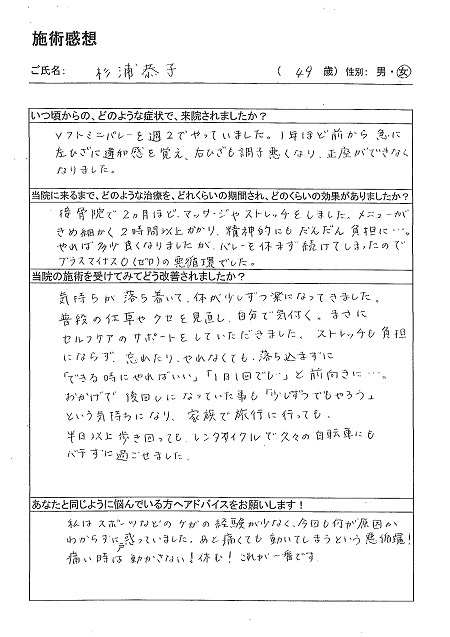 施術感想
ご氏名: 杉浦恭子 ( 49 歳) 性別: 男・女
いつ頃からの、どのような症状で、来院されましたか?
ソフトミニバレーを週2でやっていました。1年ほど前から急に
左ひざに違和感を覚え、右ひざも調子悪くなり、正座ができなく
なりました。
当院に来るまで、どのような治療を、どれくらいの期間され、どのくらいの効果がありましたか?
接骨院で2ヵ月ほど、マッサージやストレッチをしました。メニューが
きめ細かく2時間以上かかり、精神的にもだんだん負担に…。
やれば多少良くなりましたが、バレーを休まず続けてしまったので
プラスマイナス0(ゼロ)の悪循環でした。
当院の施術を受けてみてどう改善されましたか?
気持ちが落ち着いて、体が少しずつ楽になってきました。
普段の仕草やクセを見直し、自分で気付く。まさに
セルフケアのサポートをしていただきました。ストレッチも負担
にならず、忘れたり、やれなくても、落ち込まずに
「できる時にやればいい」「1日1回でも…」と前向きに…。
おかげで後回しになっていた事も「少しずつでもやろう」
という気持ちになり、家族で旅行に行っても、
半日以上歩き回っても、レンタサイクルで久々の自転車にも
バテずに過ごせました。
あなたと同じように悩んでいる方へアドバイスをお願いします!
私はスポーツなどのケガの経験が少なく、今回も何が原因か
わからずに戸惑っていました。あと痛くても動いてしまうという悪循環!
痛い時は動かさない!休む!これが一番です。